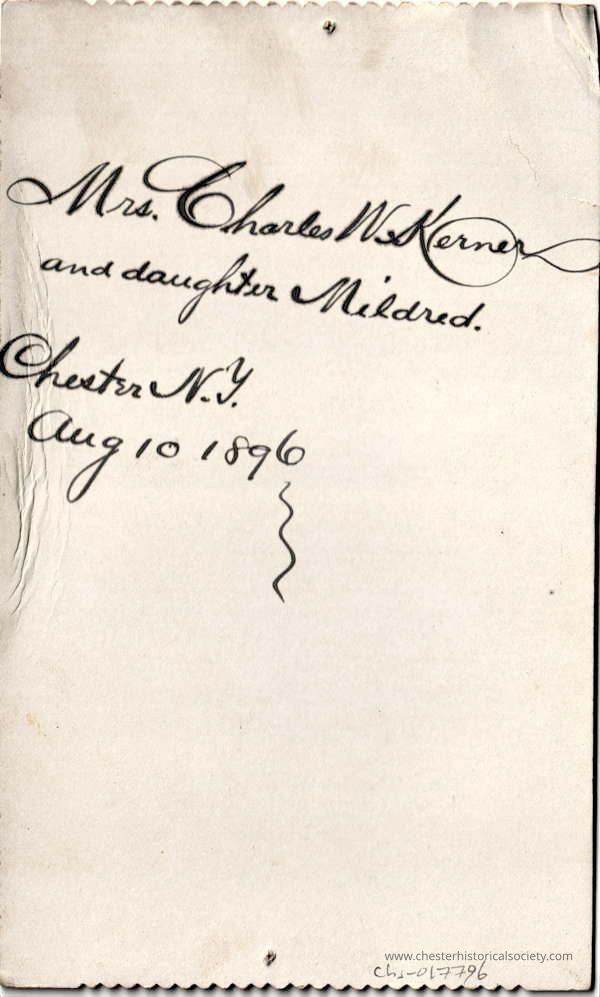 Mrs. Charles W. Kerner
and daughter Mildred.
Chester N.Y.
Aug 10 1896
www.chesterhistoricalsociety.com
chs-017796